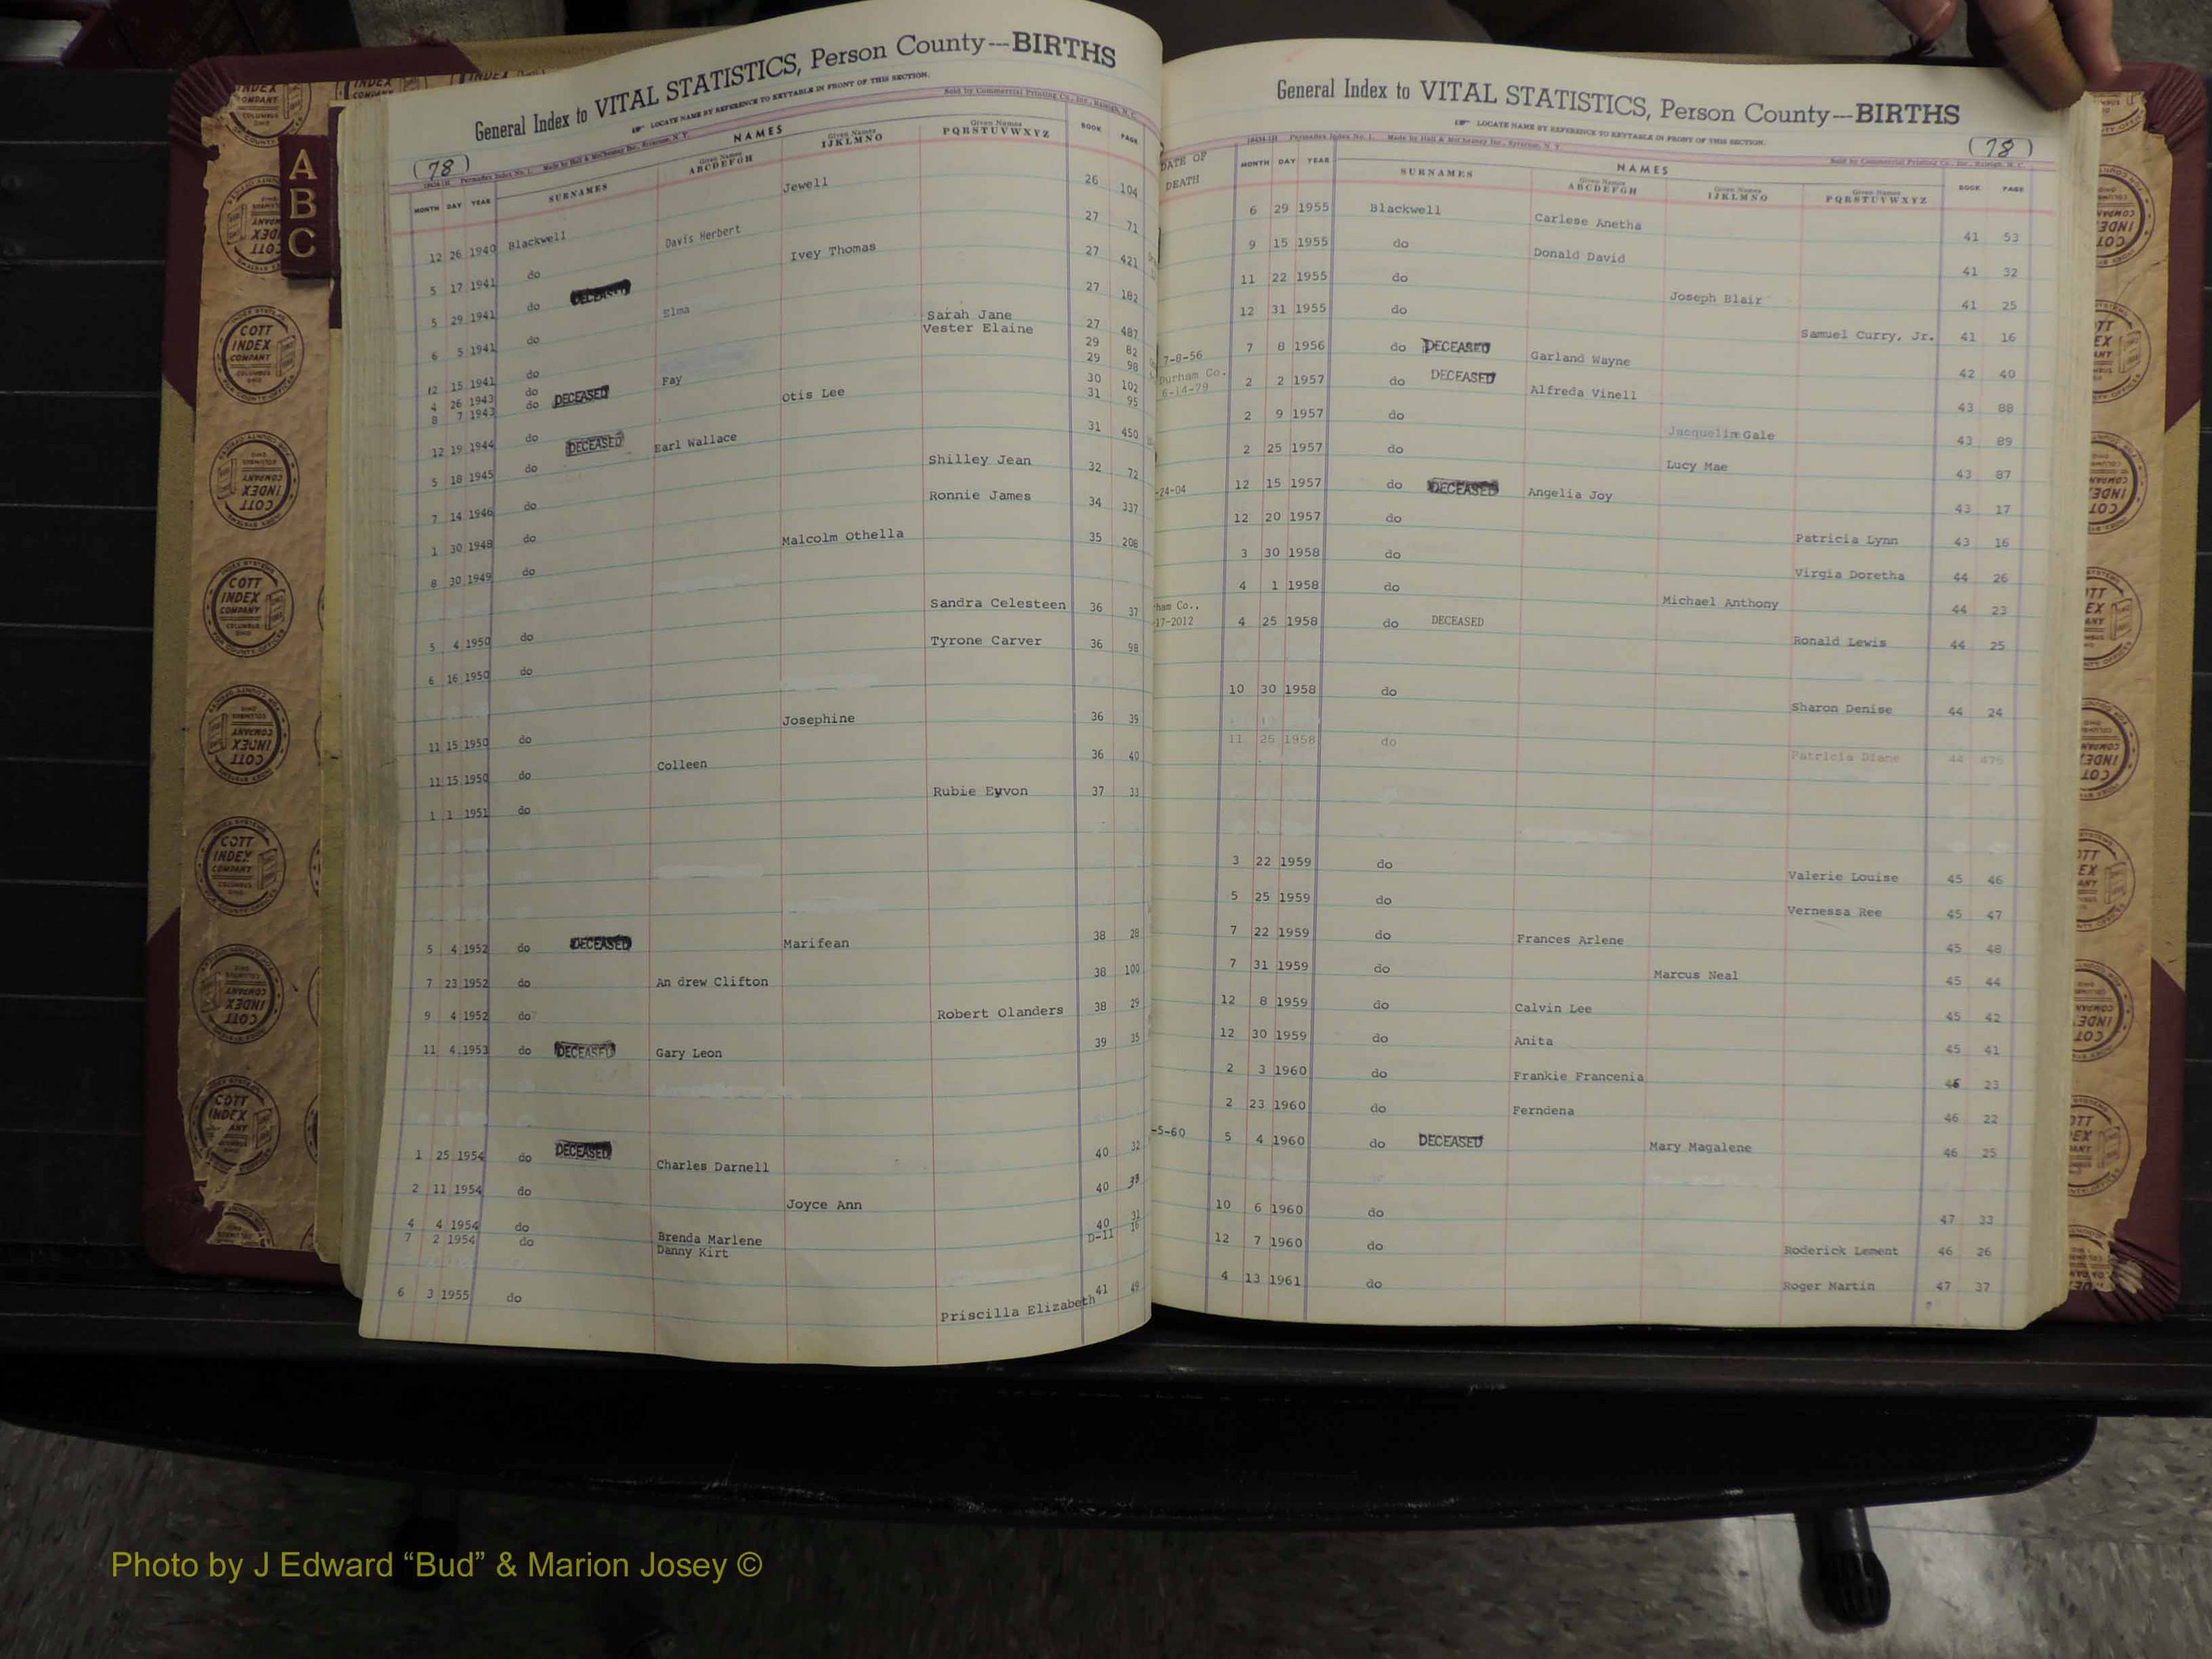 General Index to VITAL STATISTICS, Person County---BIRTHS
LOCATE NAME BY REFERENCE TO KEYTABLE IN FRONT OF THIS SECTION.
(78)
Sold by Commercial Printing Co., Inc., Raleigh, N. C.
NAMES
MONTH DAY YEAR SURNAMES Given Names ABCDEFGH Given Names IJKLMNO Given Names PQRSTUVWXYZ BOOK PAGE
12 26 1940 Blackwell Jewell 26 104
5 17 1941 do Davis Herbert 27 71
5 29 1941 do DECEASED Ivey Thomas 27 421
6 5 1941 do Elma 27 182
12 15 1941 do Sarah Jane 27 487
4 26 1943 do Vester Elaine 29 82
8 7 1943 do DECEASED Fay 29 98
12 19 1944 do DECEASED Otis Lee 30 102
5 18 1945 do Earl Wallace 31 95
31 450
7 14 1946 do Shilley Jean 32 72
1 30 1948 do Ronnie James 34 337
8 30 1949 do Malcolm Othella 35 208
5 4 1950 do Sandra Celesteen 36 37
6 16 1950 do Tyrone Carver 36 98
11 15 1950 do Josephine 36 39
11 15 1950 do Colleen 36 40
1 1 1951 do Rubie Eyvon 37 33
5 4 1952 do DECEASED Marifean 38 28
7 23 1952 do An drew Clifton 38 100
9 4 1952 do Robert Olanders 38 29
11 4 1953 do DECEASED Gary Leon 39 35
1 25 1954 do DECEASED Charles Darnell 40 32
2 11 1954 do Joyce Ann 40
4 4 1954 do Brenda Marlene 40 31
7 2 1954 do Danny Kirt D-11 16
6 3 1955 do Priscilla Elizabeth 41 49
General Index to VITAL STATISTICS, Person County---BIRTHS
LOCATE NAME BY REFERENCE TO KEYTABLE IN FRONT OF THIS SECTION.
(78)
Sold by Commercial Printing Co., Inc., Raleigh, N. C.
NAMES
DATE OF DEATH MONTH DAY YEAR SURNAMES Given Names ABCDEFGH Given Names IJKLMNO Given Names PQRSTUVWXYZ BOOK PAGE
6 29 1955 Blackwell Carlese Anetha 41 53
9 15 1955 do Donald David 41 32
11 22 1955 do Joseph Blair 41 25
12 31 1955 do Samuel Curry, Jr. 41 16
7-8-56 7 8 1956 do DECEASED Garland Wayne 42 40
Durham Co. 6-14-79 2 2 1957 do DECEASED Alfreda Vinell 43 88
2 9 1957 do Jacqueline Gale 43 89
2 25 1957 do Lucy Mae 43 87
-24-04 12 15 1957 do DECEASED Angelia Joy 43 17
12 20 1957 do Patricia Lynn 43 16
3 30 1958 do Virgia Doretha 44 26
4 1 1958 do Michael Anthony 44 23
ham Co., 17-2012 4 25 1958 do DECEASED Ronald Lewis 44 25
10 30 1958 do Sharon Denise 44 24
11 25 1958 do Patricia Diane 44 476
3 22 1959 do Valerie Louise 45 46
5 25 1959 do Vernessa Ree 45 47
7 22 1959 do Frances Arlene 45 48
7 31 1959 do Marcus Neal 45 44
12 8 1959 do Calvin Lee 45 42
12 30 1959 do Anita 45 41
2 3 1960 do Frankie Francenia 46 23
2 23 1960 do Ferndena 46 22
-5-60 5 4 1960 do DECEASED Mary Magalene 46 25
10 6 1960 do 47 33
12 7 1960 do Roderick Lement 46 26
4 13 1961 do Roger Martin 47 37
A
B
C
COTT INDEX COMPANY
COLUMBUS OHIO
Photo by J Edward “Bud” & Marion Josey ©